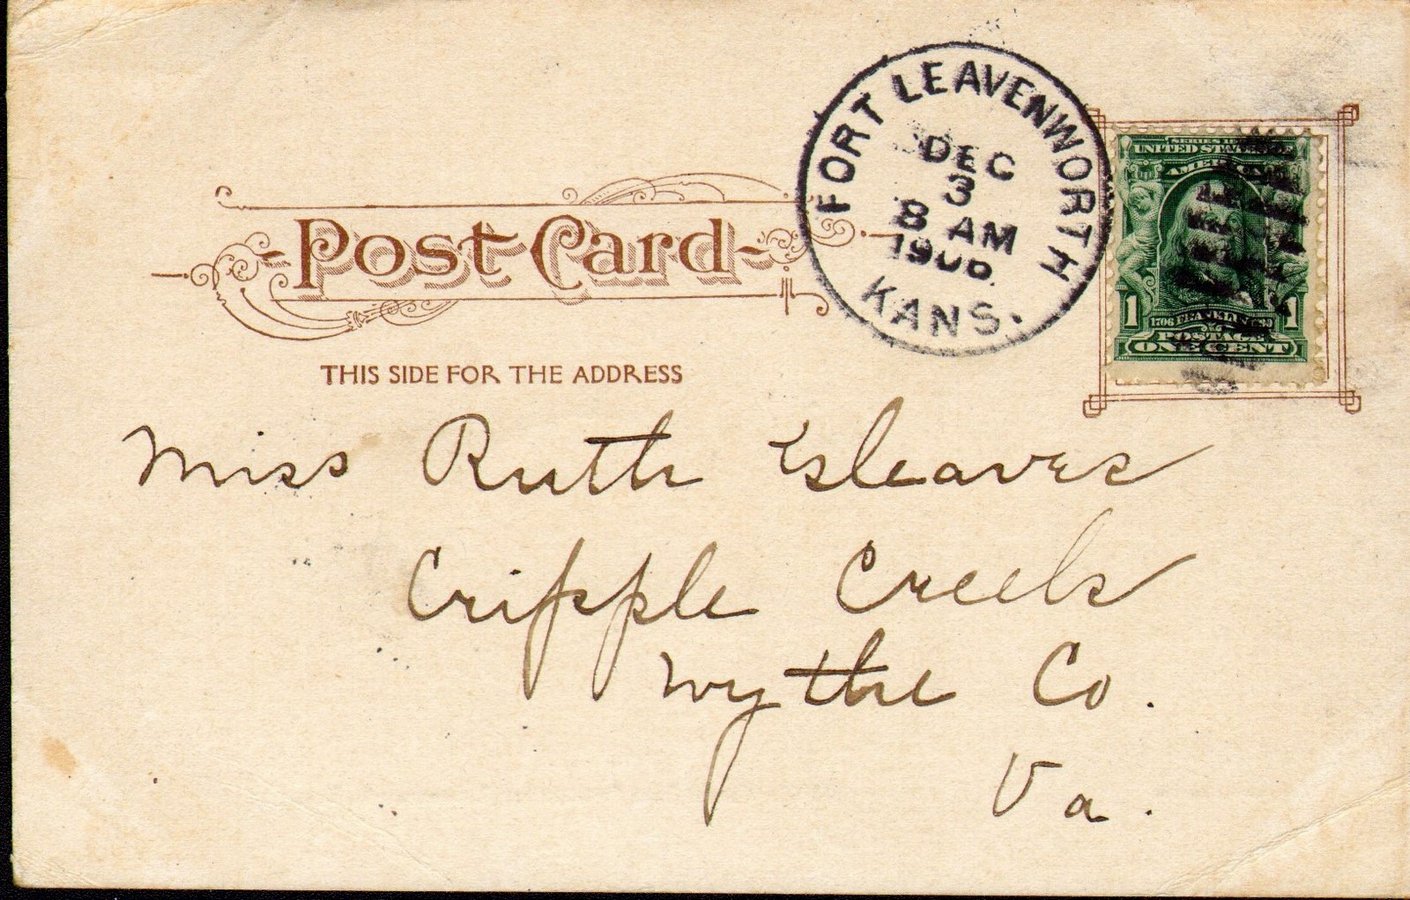 Post Card
THIS SIDE FOR THE ADDRESS
FORT LEAVENWORTH
DEC
3
8 AM
1906
KANS.
UNITED STATES
AMERICA
1 1
1706 FRANKLIN
POSTAGE
ONE CENT
Miss Ruth Gleaves
Cripple Creek
Wythe Co.
Va.